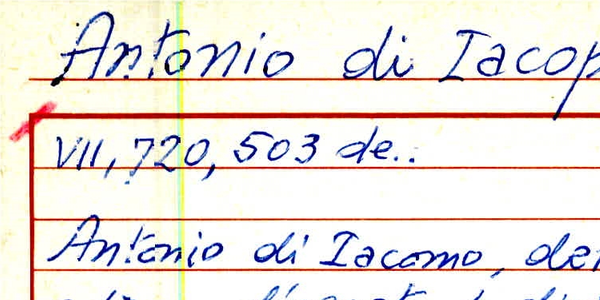 Antonio di Iacop
VII, 720, 503 de..
Antonio di Iacomo, det